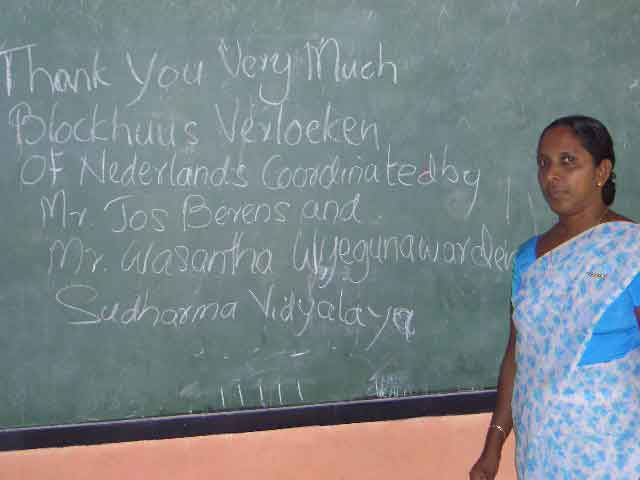 Thank You Very Much
Blockhuus Verloeken
Of Nederlands Coordinated by
Mr. Jos Berens and
Mr. Wasantha
Sudharma Vidyalaya